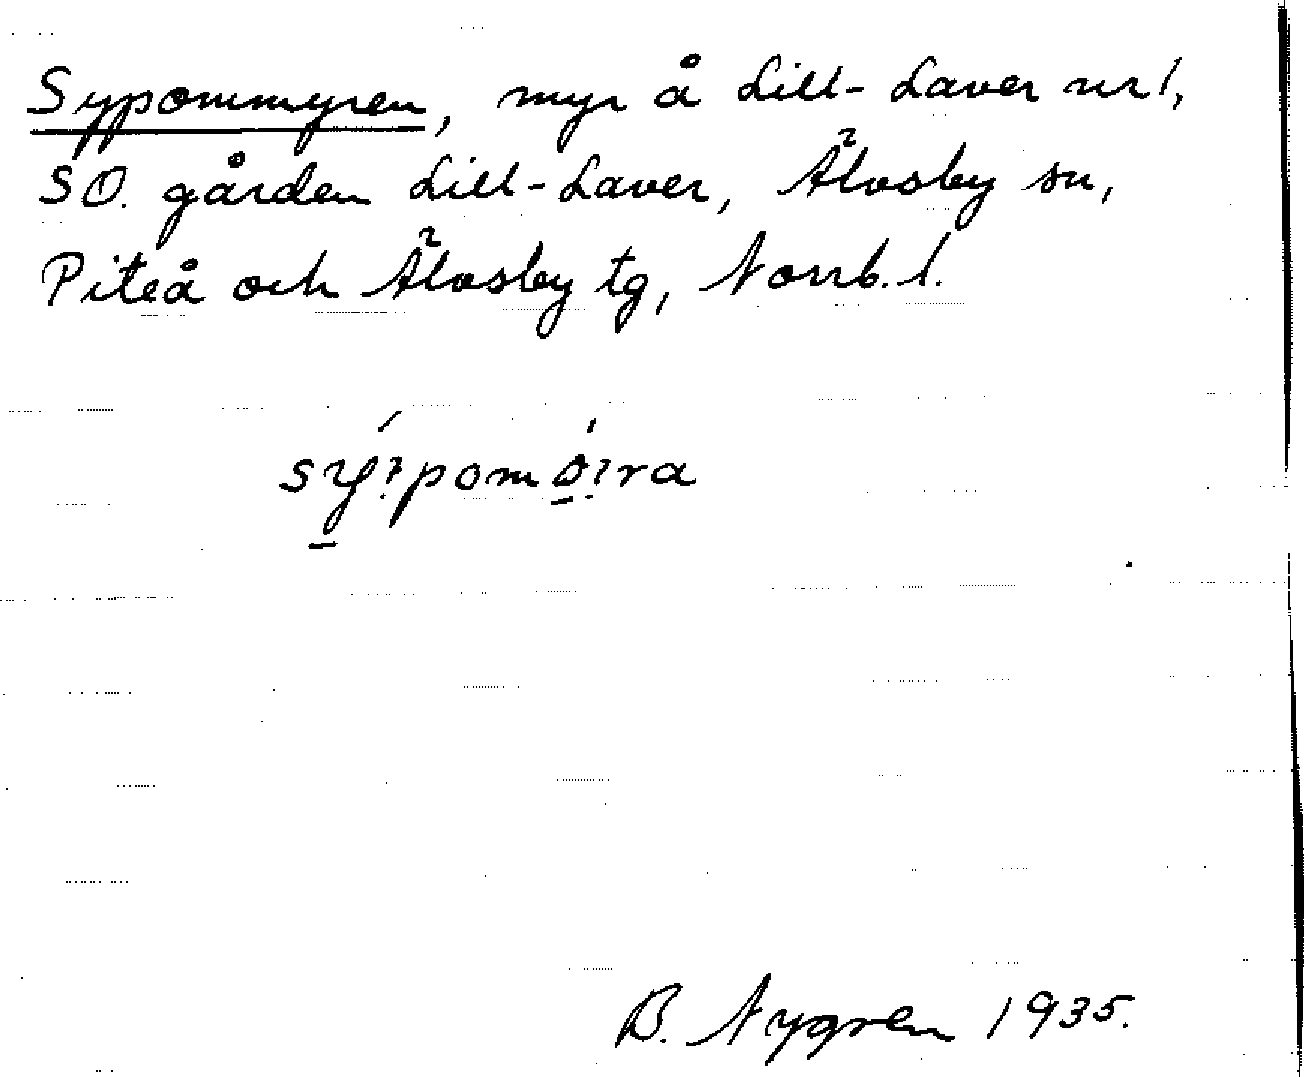 Sypommyren, myr å Lill-Laver nr 1,
SO. gården Lill-Laver, Älvsby sn,
Piteå och Älvsby tg, Norrb. l.
sý̲ꝛpomo̲̍ꝛra
B. Nygren 1935.